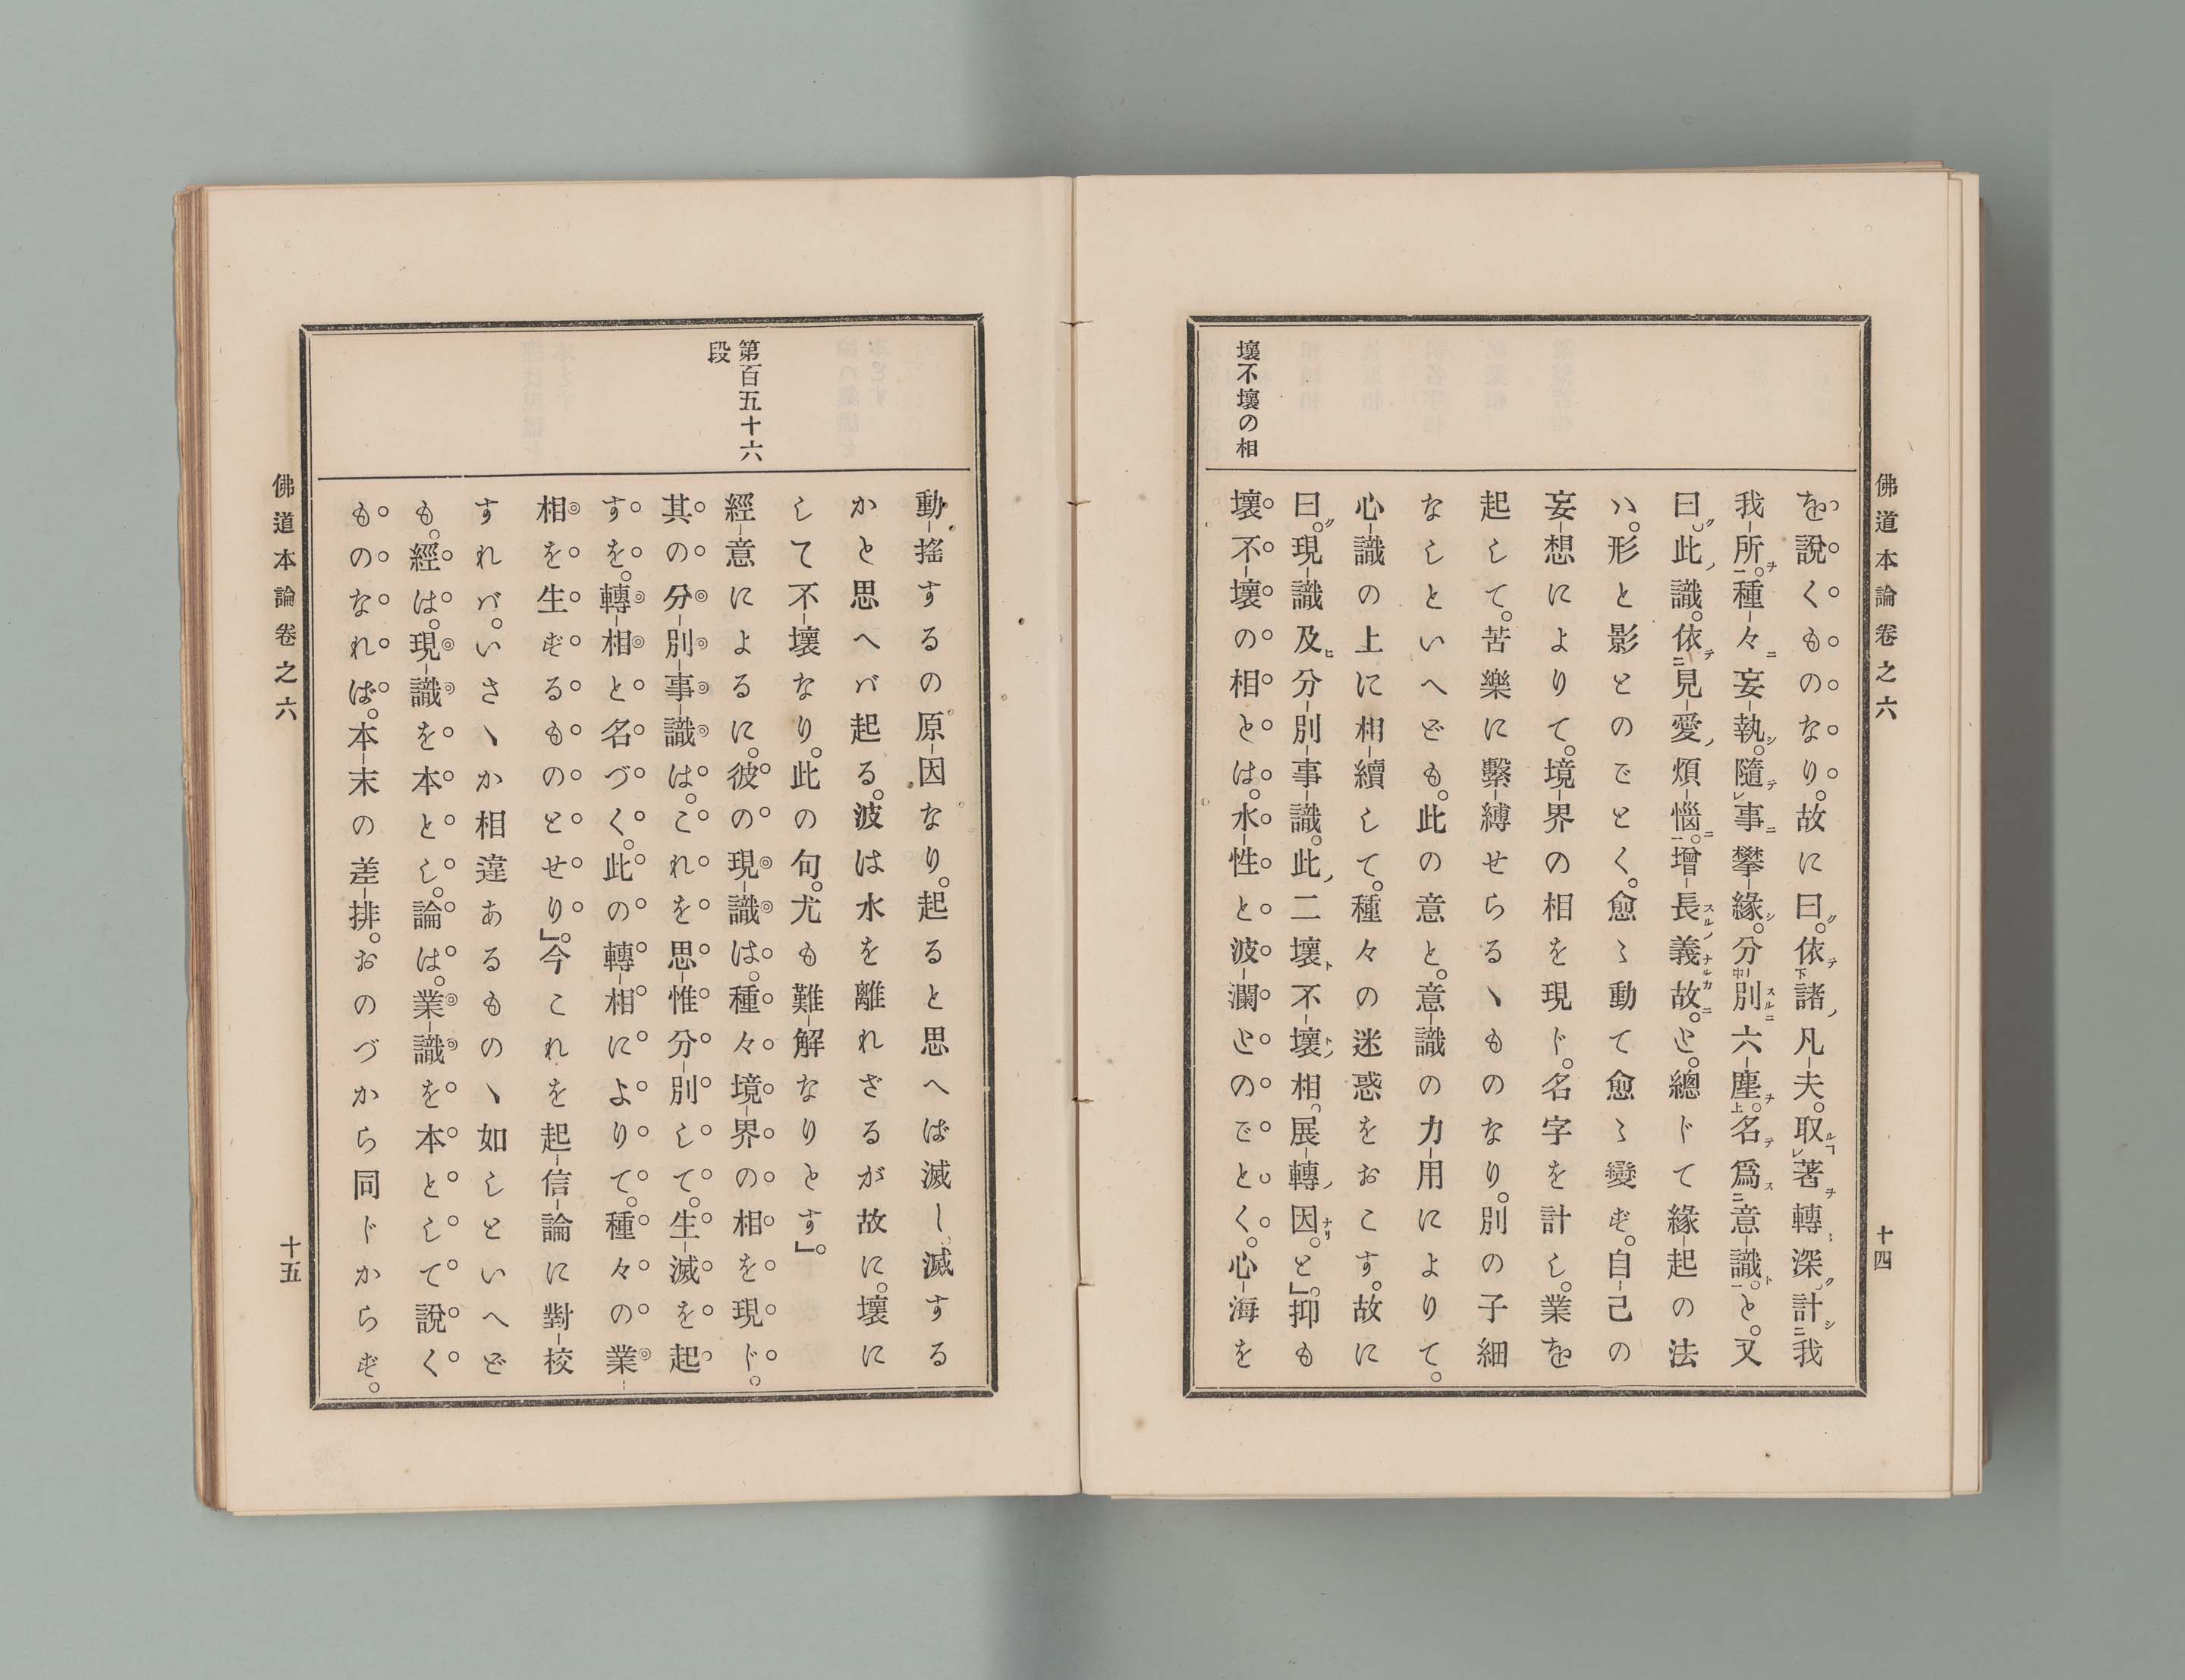 佛道本論卷之六
十四
壞不壞の相
を說くものなり。故に曰ク。依テ下諸ノ凡夫。取ルコレ著ヲ轉〻深ク計シ二我
我所ヲ一。種々ニ妄執シ。隨テレ事ニ攀緣シ。分中別スルニ六塵ヲ上。名テ爲ス二意識ト一。と。又
曰ク。此ノ識。依テ二見愛ノ煩惱ニ一。增長スルノ義ナルカ故ニ。と。總じて緣起の法
ハ。形と影とのごとく。愈〻動て愈〻變ず。自己の
妄想によりて。境界の相を現ド。名字を計し。業を
起して。苦樂に繫縛せらるヽものなり。別の子細
なしといへども。此の意と。意識の力用によりて。
心識の上に相續して。種々の迷惑をおこす。故に
曰ク。現識及ヒ分別事識。此ノ二壞ト不壞トノ相。展轉ノ因ナリ。と」。抑も
壞不壞の相とは。水性と波瀾とのごとく。心海を
動搖するの原因なり。起ると思へば滅し、滅する
かと思へバ起る。波は水を離れざるが故に。壞に
して不壞なり。此の句。尤も難解なりとす」。
第百五十六
段
經意によるに。彼の現識は。種々境界の相を現ド。
其の分別事識は。これを思惟分別して。生滅を起
すを。轉相と名づく。此の轉相によりて。種々の業
相を生ずるものとせり」。今これを起信論に對校
すれバ。いさヽか相違あるものヽ如しといへど
も。經は。現識を本とし。論は。業識を本として說く
ものなれば。本末の差排。おのづから同ドからず。
佛道本論卷之六
十五